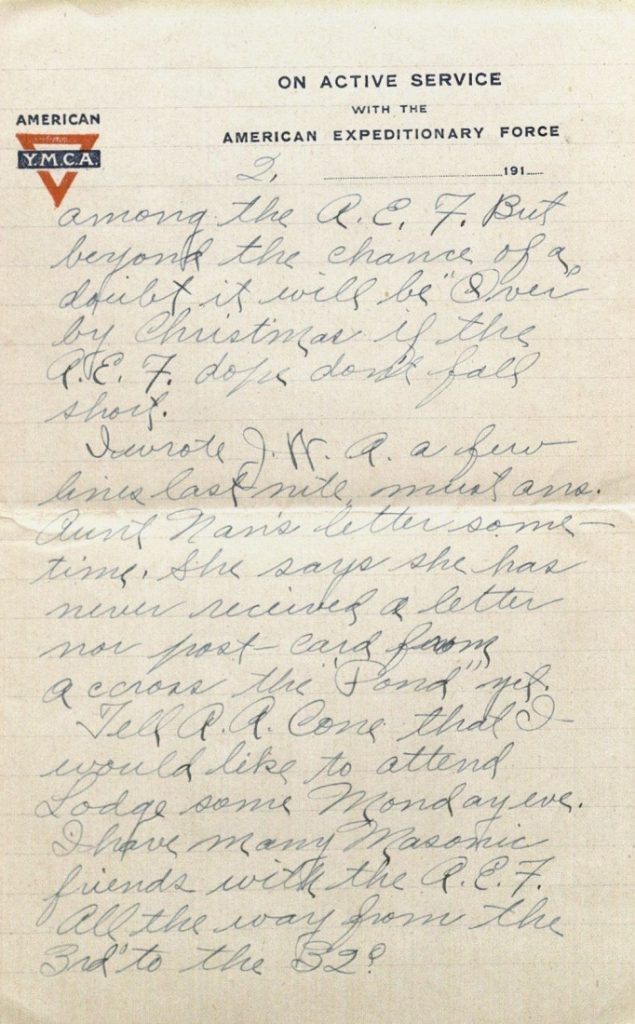 ON ACTIVE SERVICE
WITH THE
AMERICAN EXPEDITIONARY FORCE
AMERICAN
Y.M.C.A.
2. 191
among the A. E. F. But
beyond the chance of a
doubt it will be "Over"
by Christmas if the
A. E. F. dope don't fall
short.
I wrote J. W. A. a few
lines last nite, must ans.
Aunt Nan's letter some-
time. She says she has
never received a letter
nor post-card from
accross the "Pond" yet.
Tell A. A. Cone that I
would like to attend
Lodge some Monday eve.
I have many Masonic
friends with the A. E. F.
All the way from the
3rd to the 32°